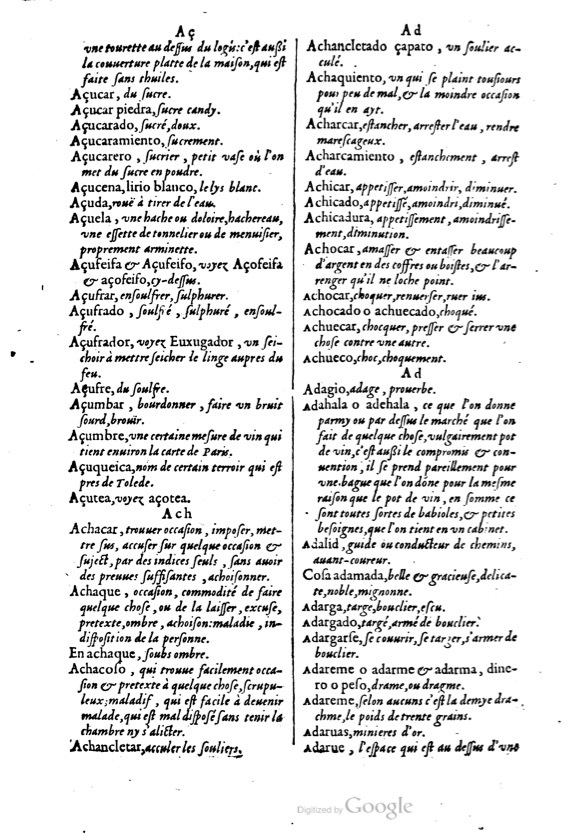 Aç
vne tourette au dessus du logis: c'est aussi
la couuerture platte de la maison, qui est
faite sans thuiles.
Açucar, du sucre.
Açucar piedra, sucre candy.
Açucarado, sucré, doux.
Açucaramiento, sucrement.
Açucarero, sucrier, petit vase où l'on
met du sucre en poudre.
Açucena, lirio blanco, le lys blanc.
Açuda, rouë à tirer de l'eau.
Açuela, vne hache ou doloire, hachereau,
vne essette de tonnelier ou de menuisier,
proprement arminette.
Açufeifa & Açufeifo, voyez Açofeifa
& açofeifo, cy-dessus.
Açufrar, ensoulfrer, sulphurer.
Açufrado, soulfré, sulphuré, ensoul-
fré.
Açufrador, voyez Euxugador, un sei-
choir à mettre seicher le linge aupres du
feu.
Açufre, du soulfre.
Açumbar, bourdonner, faire vn bruit
sourd, brouir.
Açumbre, vne certaine mesure de vin qui
tient enuiron la carte de Paris.
Açuqueica, nom de certain terroir qui est
pres de Tolede.
Açutea, voyez açotea.
Ach
Achacar, trouuer occasion, imposer, met-
tre sus, accuser sur quelque occasion &
suject, par des indices seuls, sans auoir
des preuues suffisantes, achoisonner.
Achaque, occasion, commodité de faire
quelque chose, ou de la laisser, excuse,
pretexte, ombre, achoison: maladie, in-
disposition de la personne.
En achaque, soubs ombre.
Achacoso, qui trouue facilement occa-
sion & pretexte à quelque chose, scrupu-
leux; maladif, qui est facile à deuenir
malade, qui est mal disposé sans tenir la
chambre ny s'alicter.
Achancletar, acculer les souliers.
Ad
Achancletado çapato, vn soulier ac-
culé.
Achaquiento, vn qui se plaint tousiours
pour peu de mal, & la moindre occasion
qu'il en ayt.
Acharcar, estancher, arrester l'eau, rendre
marescageux.
Acharcamiento, estanchement, arrest
d'eau.
Achicar, appetisser, amoindrir, diminuer.
Achicado, appetissé, amoindri, diminué.
Achicadura, appetissement, amoindrisse-
ment, diminution.
Achocar, amasser & entasser beaucoup
d'argent en des coffres ou boistes, & l'ar-
renger qu'il ne loche point.
Achocar, choquer, renuerser, ruer ius.
Achocado o achuecado, choqué.
Achuecar, chocquer, presser & serrer vne
chose contre vne autre.
Achueco, choc, choquement.
Ad
Adagio, adage, prouerbe.
Adahala o adehala, ce que l'on donne
parmy ou par dessus le marché que l'on
fait de quelque chose, vulgairement pot
de vin, c'est aussi le compromis & con-
uention, il se prend pareillement pour
vne bague que l'on dóne pour la mesme
raison que le pot de vin, en somme ce
sont toutes sortes de babioles, & petites
besoignes, que l'on tient en vn cabinet.
Adalid, guide ou conducteur de chemins,
auant-coureur.
Cosa adamada, belle & gracieuse, delica-
te, noble, mignonne.
Adarga, targe, bouclier, escu.
Adargado, targé, armé de bouclier.
Adargarse, se couurir, se targer, s'armer de
bouclier.
Adareme o adarme & adarma, dine-
ro o peso, drame, ou dragme.
Adareme, selon aucuns c'est la demye dra-
chme, le poids de trente grains.
Adaruas, minieres d'or.
Adarue, l'espace qui est au dessus d'vne
Digitized by Google